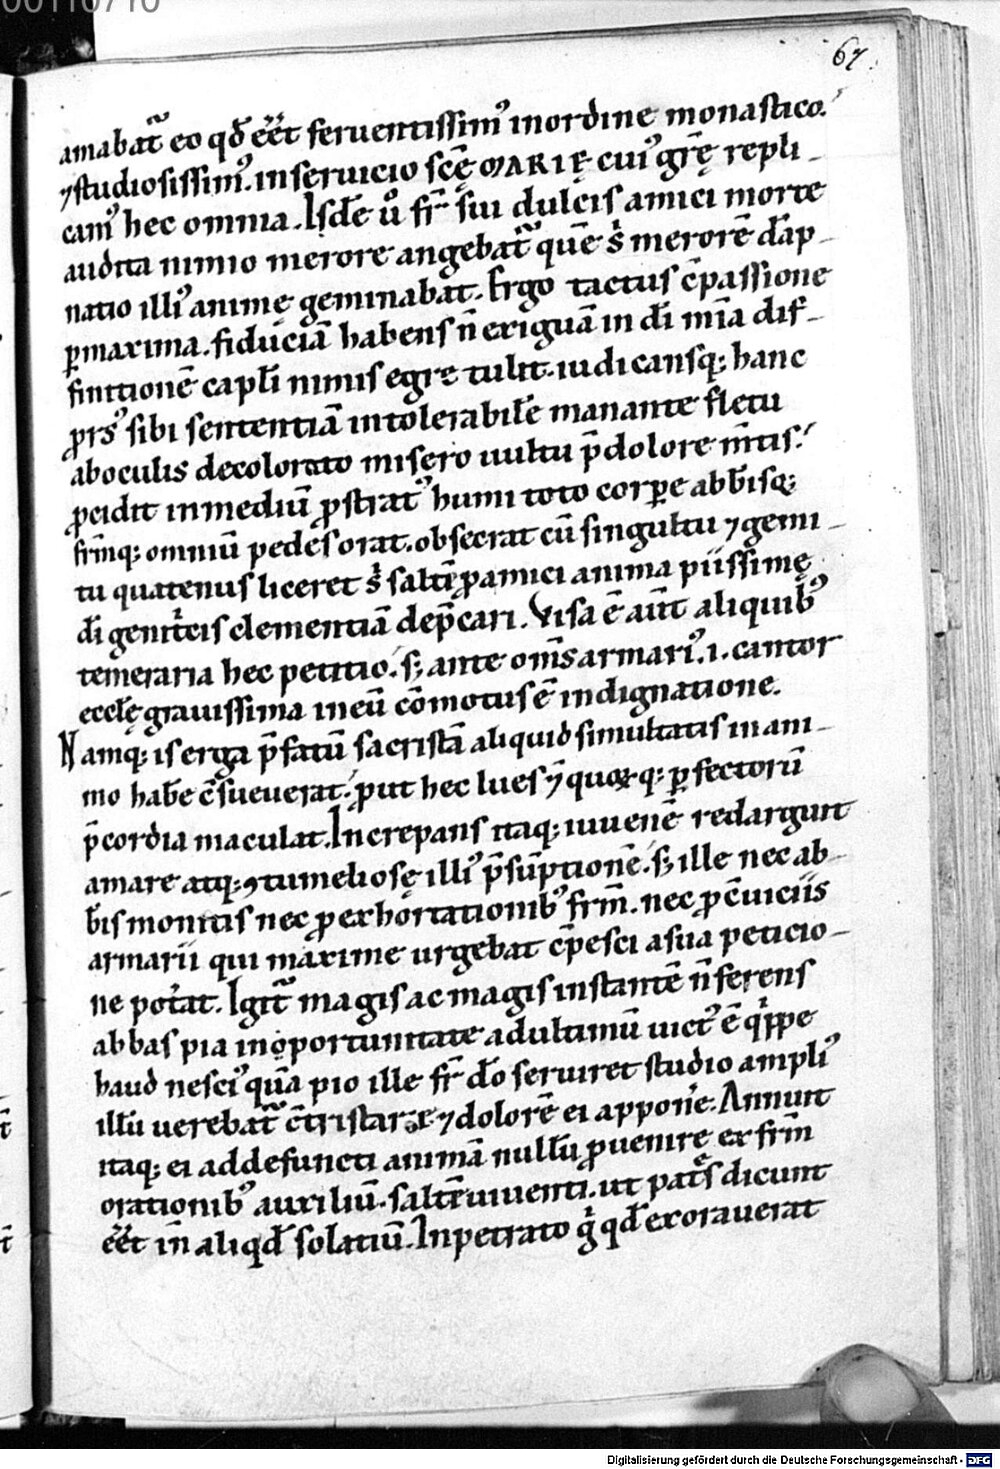 00110710
67
amabat᷑ eo qđ eēt feruentissimꝰ in ordine monastico.
⁊ studiosissimꝰ. in seruicio scę MARIĘ cuiꝰ grę̄ repli-
camꝰ hec omnia. Isđe ů fr̄ sui dulcis amici morte
audita nimio merore angebat᷑ quē s; merorē dāp-
natio illiꝰ animę geminabat. Ergo tactus c̄passione
ꝑmaxima. fiduciā habens n̄ exiguā in dī mīa dif-
finitionē capłi nimis egre tulit. iudicansq; hanc
ꝓrsꝰ sibi sententiā intolerabilē manante fletu
ab oculis decolorato misero uultu p̄ dolore m̄tis.
ꝓcidit in mediū ꝓstratꝰ humi toto corꝑe abb̄isq;
fr̄mq; omniū pedes orat. obsecrat cū singultu ⁊ gemi-
tu quatenus liceret s; saltē ꝓ amici anima piissimę
dī genitcis clementiā dep̄cari. Visa ē aūt aliquibꝰ
temeraria hec petitio. s; ante om̄s armariꝰ .i. cantor
ecclę grauissima in eū cōmotus ē indignatione.
Namq; is erga p̄fatū sacristā aliquid simultatis in ani-
mo habē c̄sueuerat. ꝓut hec lues quoꝝq; ꝑfectorū
p̄cordia maculat. Increpans itaq; iuuenē redarguit
amare atq; ꝯtumeliosę illiꝰ p̄sūptionē. s; ille nec ab-
b̄is monitis nec ꝓ exhortationibꝰ fr̄m. nec ꝓ c̄uiciis
armarii qui maxime urgebat c̄pesci a sua peticio-
ne pot̄at. Igit᷑ magis ac magis instantē n̄ ferens
abbas pia inoportunitate ad ultimū uictꝰ ē qippe
haud nesciꝰ quā pio ille fr̄ dō seruiret studio ampliꝰ
illū uerebat᷑ c̄tristare ⁊ dolorē ei apponē. Annuit
itaq; ei ad defuncti animā nullū ꝓuenire ex fr̄m
orationibꝰ auxiliū. saltē uiuenti. ut patēs dicunt
eēt in aliqđ solatiū. Inpetrato g qđ exorauerat
Digitalisierung gefördert durch die Deutsche Forschungsgemeinschaft - DFG